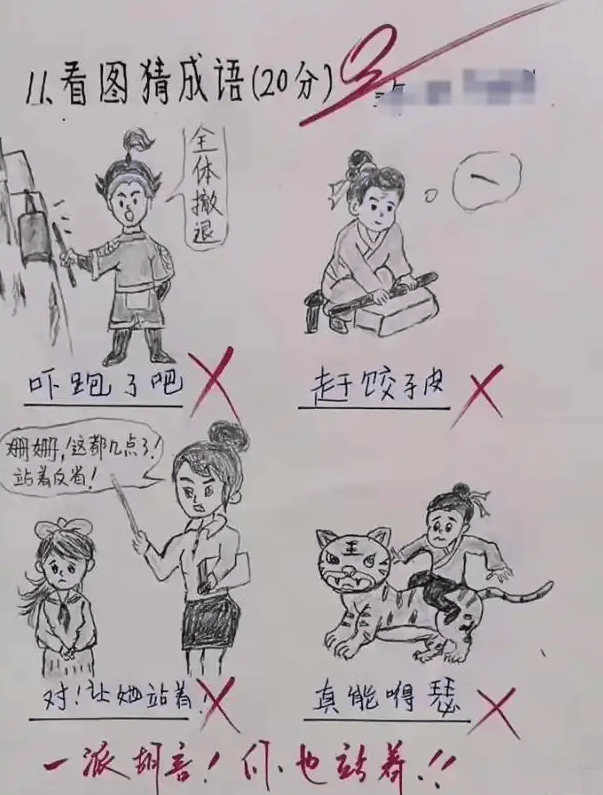 11、看图猜成语(20分)
全体撤退
一
吓跑了吧
赶饺子皮
姗姗,这都几点了!
站着反省!
王
对!让她站着!
真能嘚瑟
一派胡言!你也站着!!